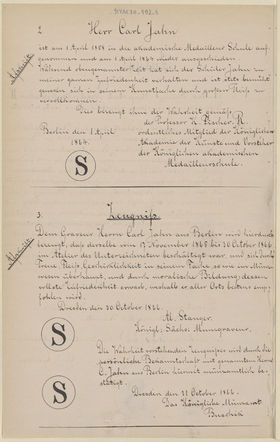 2
Herr Carl Jahn
ist am 1 April 1858 in die academische Medailleur Schule auf-
genommen und am 1 April 1864 wieder ausgeschieden
Während obengenannter Zeit hat sich der Schüler Jahn zu
meiner ganzen Zufriedenheit verhalten und ist stets bemüht
gewesen sich in seinem Kunstfache durch großen Fleiß zu
vervollkommnen.
Dies bezeugt hiermit der Wahrheit gemäß
der Professor K. Fischer.
Berlin den 1 April
1864.
ordentliches Mitglied der Königlichen
Academie der Künste und Vorsteher
der Königlichen academischen
Medailleurschule.
S
3.
Zeugniß
Dem Graveur Herrn Carl Jahn aus Berlin wird hierdurch
bezeugt, daß derselbe vom
November 1865 bis 30 October 1866
im Atelier des Unterzeichneten beschäftigt war, und sich durch
Fleiß, Geschicklichkeit in seinem Fache, sowie im Münz-
wesen überhaupt, und durch moralische Bildung, dessen
vollste Zufriedenheit erwarb, weshalb er aller Orts bestens emp-
fohlen wird.
Dresden den 30 October 1866.
Al. Stanger.
Königl. Sächs. Münzgraveur.
S
Die Wahrheit vorstehenden Zeugnisses wird durch die
persönliche Bekanntschaft mit genanntem Herrn
C. Jahn aus Berlin hiermit
be-
stätigt.
Dresden den 31 October 1866.
Das Königliche Münzamt
S